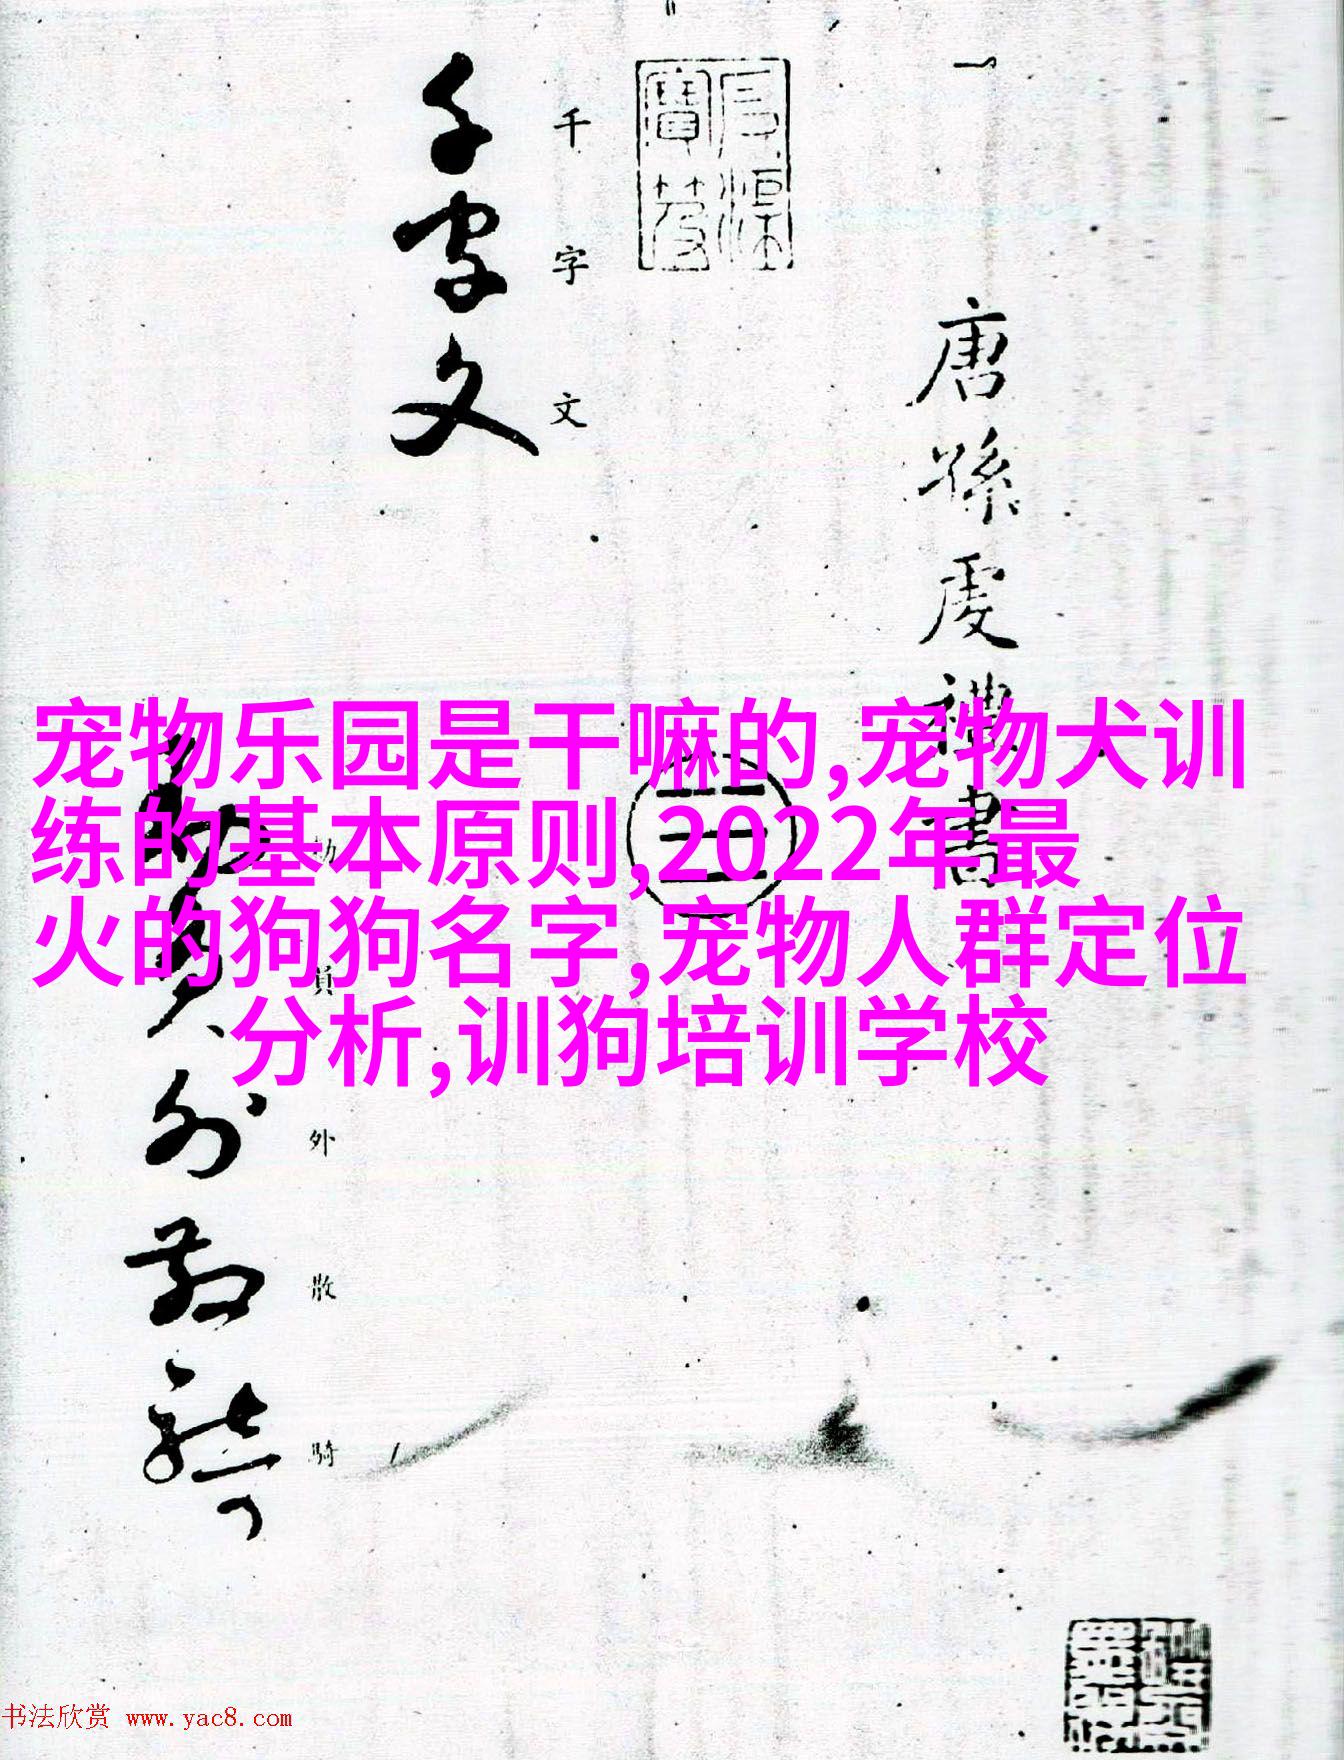 唐孫虔禮書
三
千字文
千字文
勅員外散騎
勅員外散騎
宠物乐园是干嘛的,宠物犬训
练的基本原则,2022年最
火的狗狗名字,宠物人群定位
分析,训狗培训学校
书法欣赏 www.yac8.com